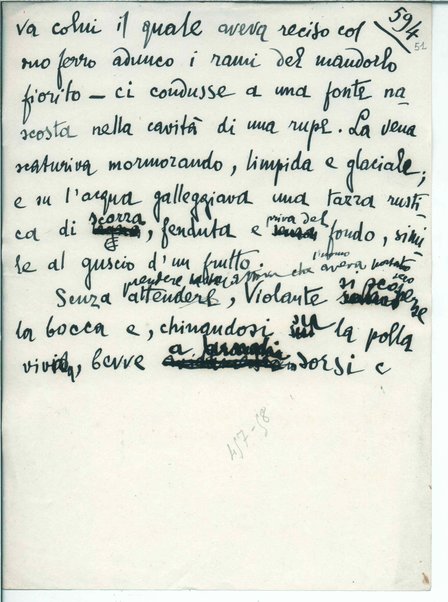 59/4
51
va colui il quale aveva reciso col
suo ferro adunco i rami del mandorlo
fiorito — ci condusse a una fonte na
scosta nella cavità di una rupe. La vena
scaturiva mormorando, limpida e glaciale;
e su l'acqua galleggiava una tazza rusti
ca di scorza, fenduta e priva del fondo, simi
le al guscio d'un frutto.
prendere l'uomo che aveva
Senza attendere, Violante si scoperse
la bocca e, chinandosi su la polla
viva, bevve a sorsi c
457-58